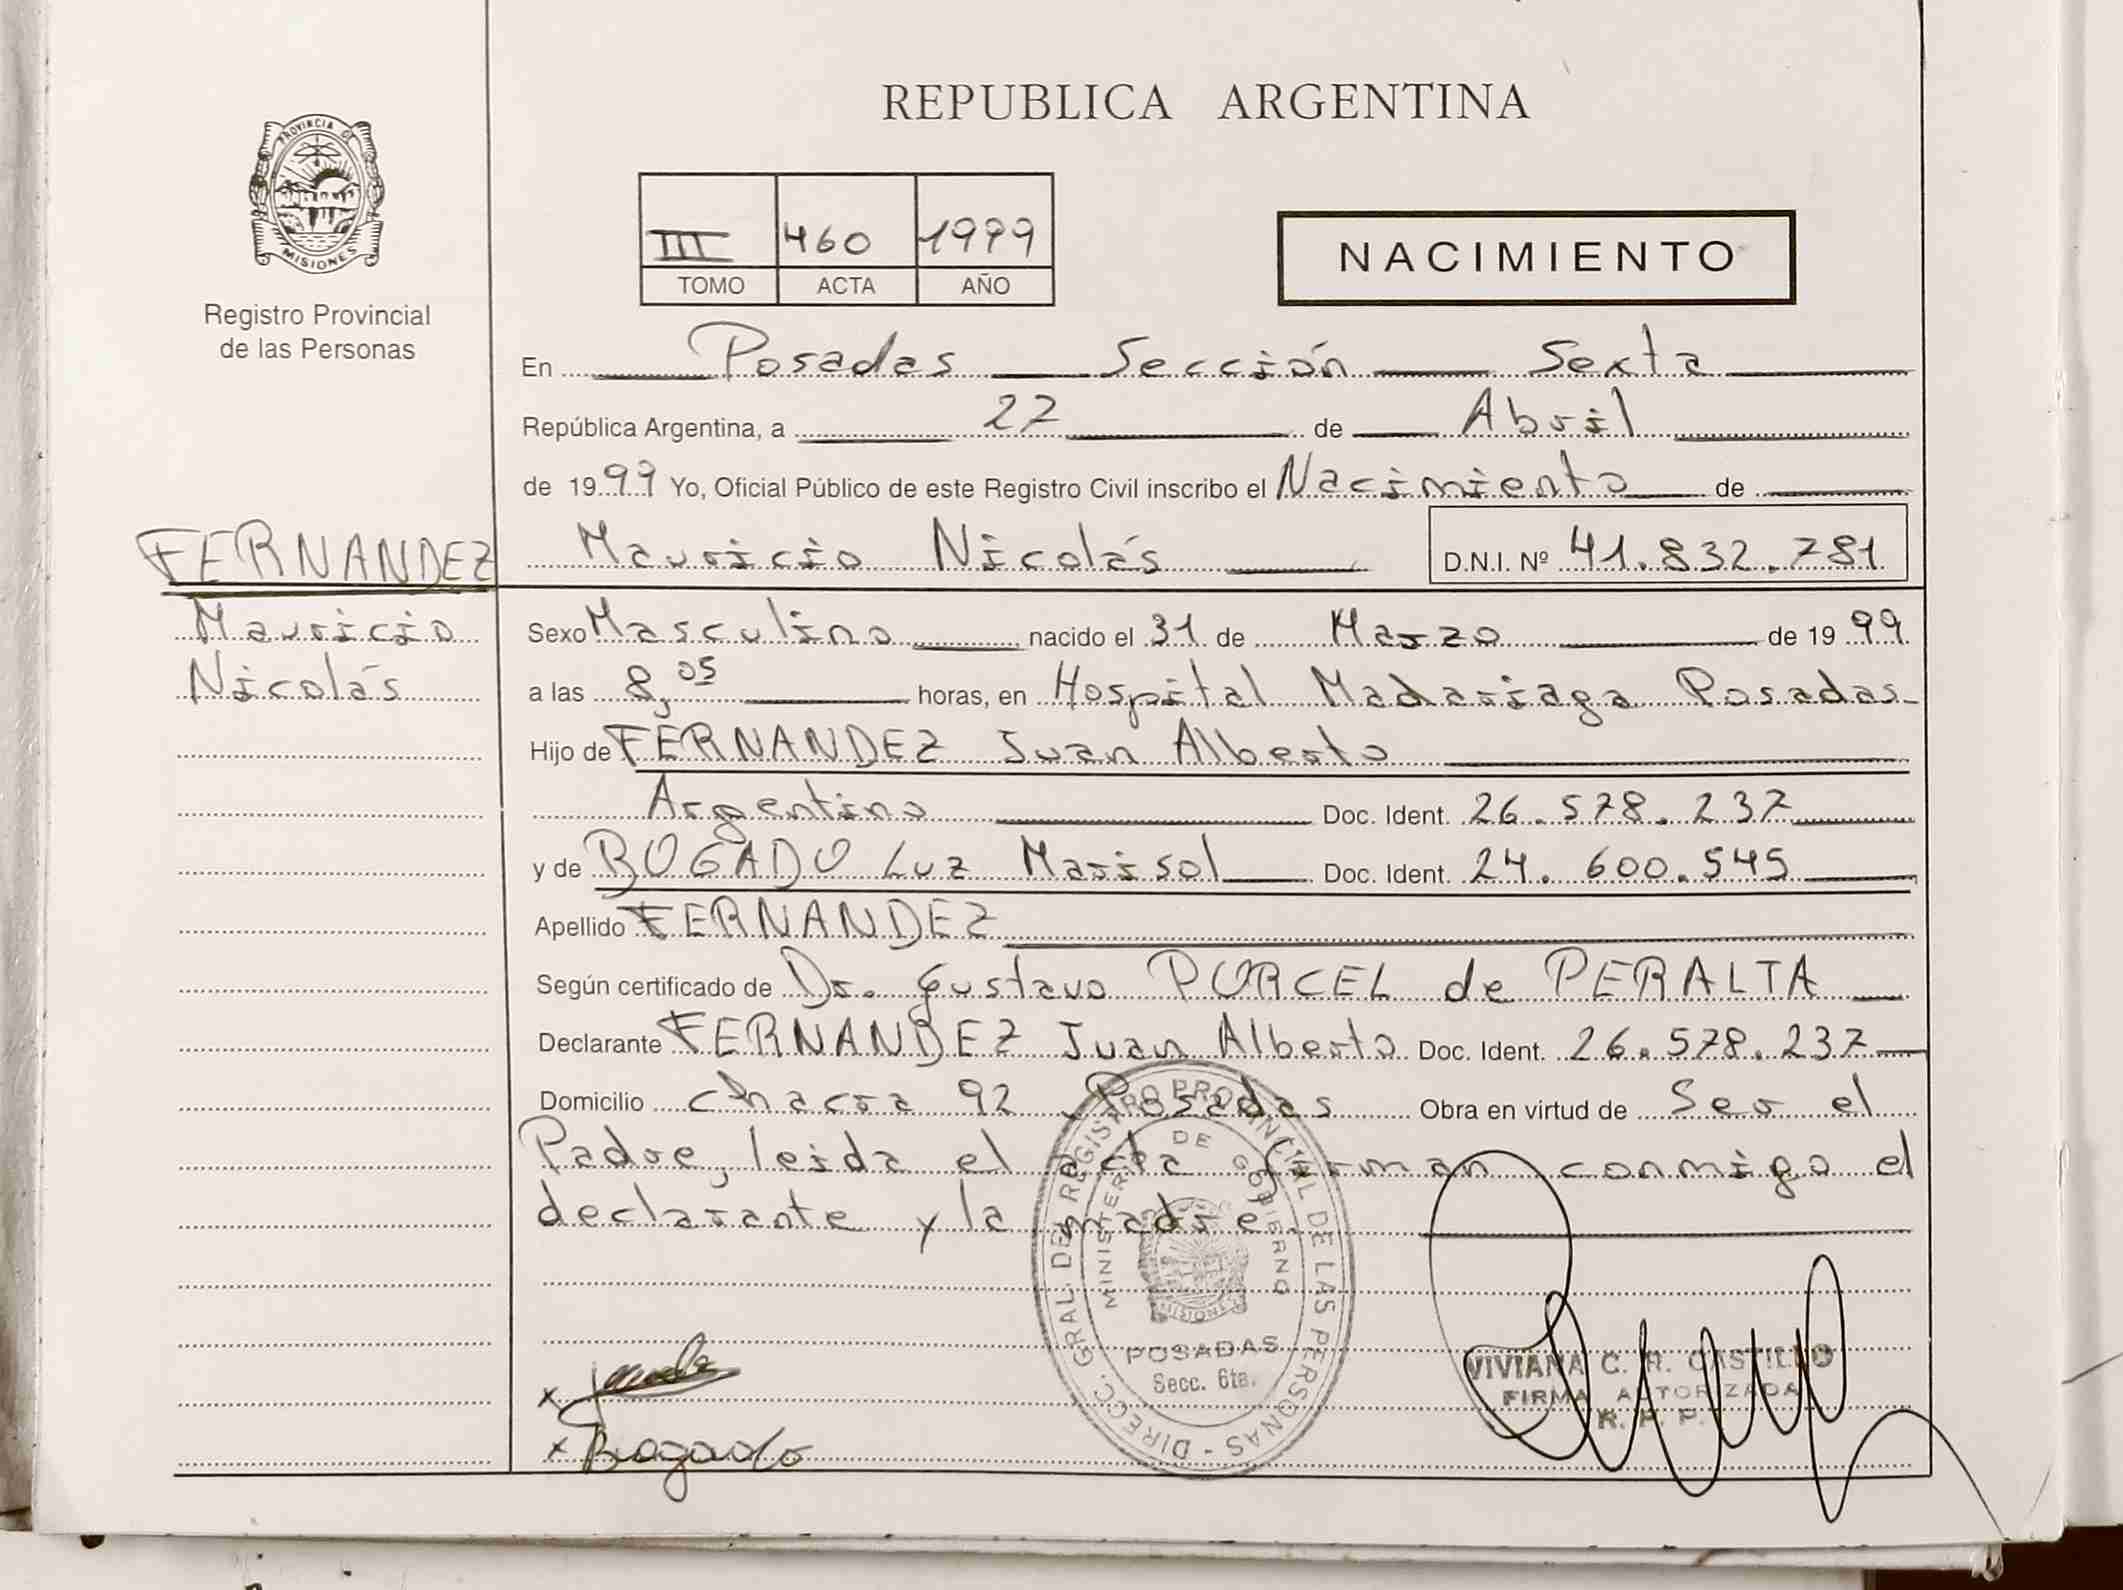 REPUBLICA ARGENTINA
PROVINCIA DE
MISIONES
Registro Provincial
de las Personas
III 460 1999
TOMO ACTA AÑO
NACIMIENTO
En Posadas Sección Sexta
República Argentina, a 27 de Abril
de 1999 Yo, Oficial Público de este Registro Civil inscribo el Nacimiento de
FERNANDEZ
Mauricio
Nicolás
Mauricio Nicolás D.N.I. Nº 41.832.781
Sexo Masculino, nacido el 31 de Marzo de 1999
a las 8,05 horas, en Hospital Madariaga Posadas
Hijo de FERNANDEZ Juan Alberto
Argentino Doc. Ident. 26.578.237
y de BOGADO Luz Marisol Doc. Ident. 24.600.545
Apellido FERNANDEZ
Según certificado de Dr. Gustavo PORCEL de PERALTA
Declarante FERNANDEZ Juan Alberto Doc. Ident. 26.578.237
Domicilio chacra 92 Posadas Obra en virtud de Ser el
Padre, leida el acta firman conmigo el
declarante y la madre.
DIRECC. GRAL. DE REGISTRO PROVINCIAL DE LAS PERSONAS -
MINISTERIO DE GOBIERNO
MISIONES
POSADAS
Secc. 6ta.
VIVIANA C. R. CASTILLO
FIRMA AUTORIZADA
R. P. P.
x
x Bogado